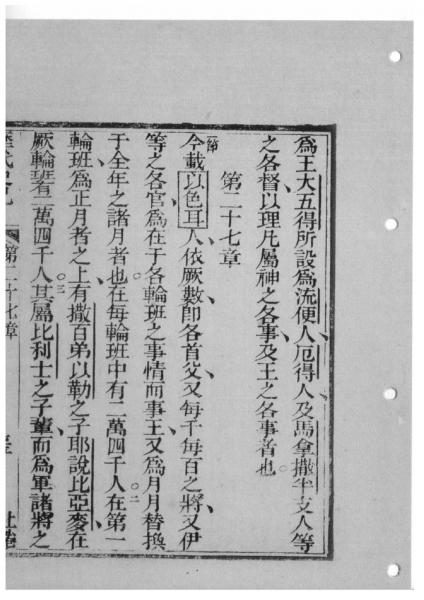 爲王大五得所設爲流便人厄得人及馬拿撒半支人等
之各督以理凡屬神之各事及王之各事者也
第二十七章
一節今載以色耳人依厥數卽各首父又每千每百之將又伊
等之各官爲在于各輪班之事情而事王又爲月月替換
于全年之諸月者也在每輪班中有二萬四千人二在第一
輪班爲正月者之上有撒百弟以勒之子耶說比亞麥在
厥輪班有二萬四千人三其屬比利士之子輩而爲軍諸將之
第二十七章